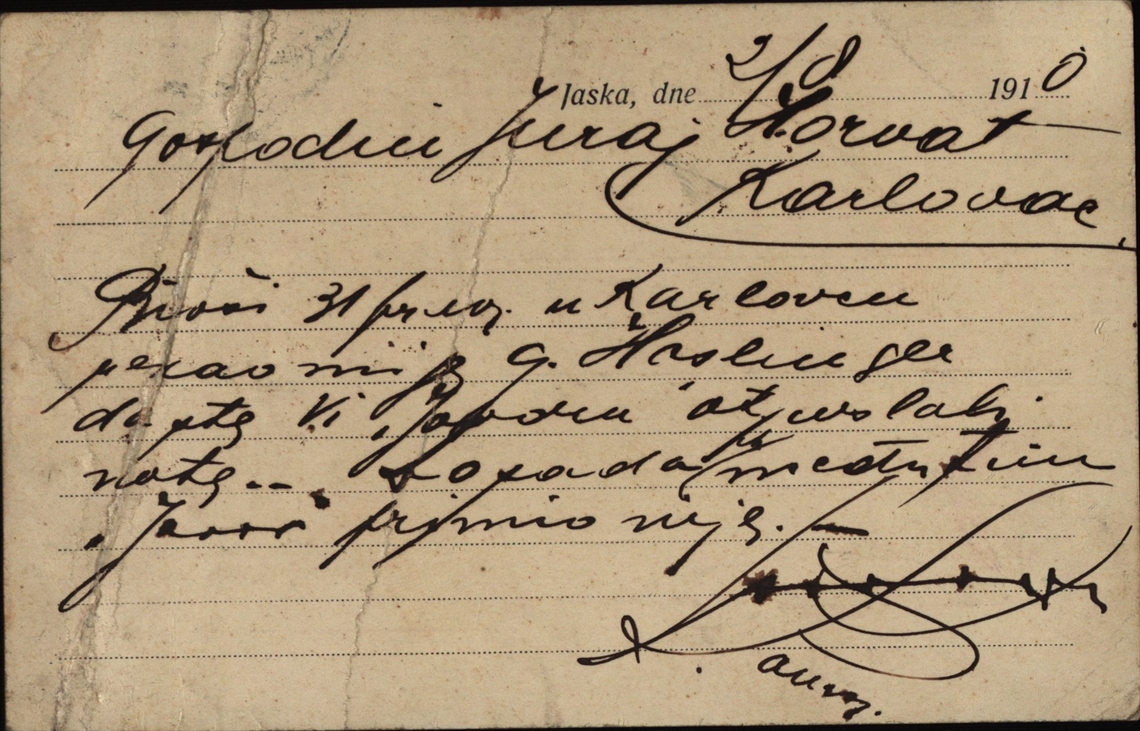 Jaska, dne 2/8 1910
Gospodin Juraj Horvat
Karlovac
Bivši 31 pr. mj. u Karlovcu
rekao mi je g. Haslinger
da ste Vi „Javoru" otposlali
note... Do sada međutim
„Javor" primio nije. —